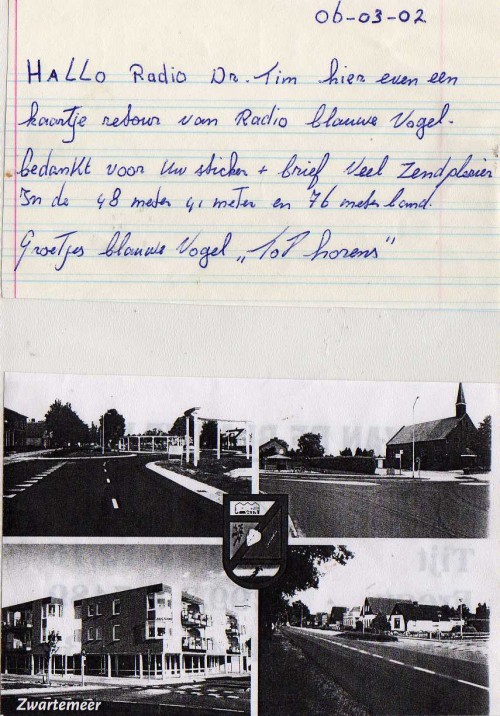 06-03-02
HALLO Radio Dr. Tim hier even een
kaartje retour van Radio blauwe Vogel.
bedankt voor uw sticker + brief Veel Zendplezier
In de 48 meter 41 meter en 76 meter band.
Groetjes blauwe Vogel „Tot horens”
Zwartemeer